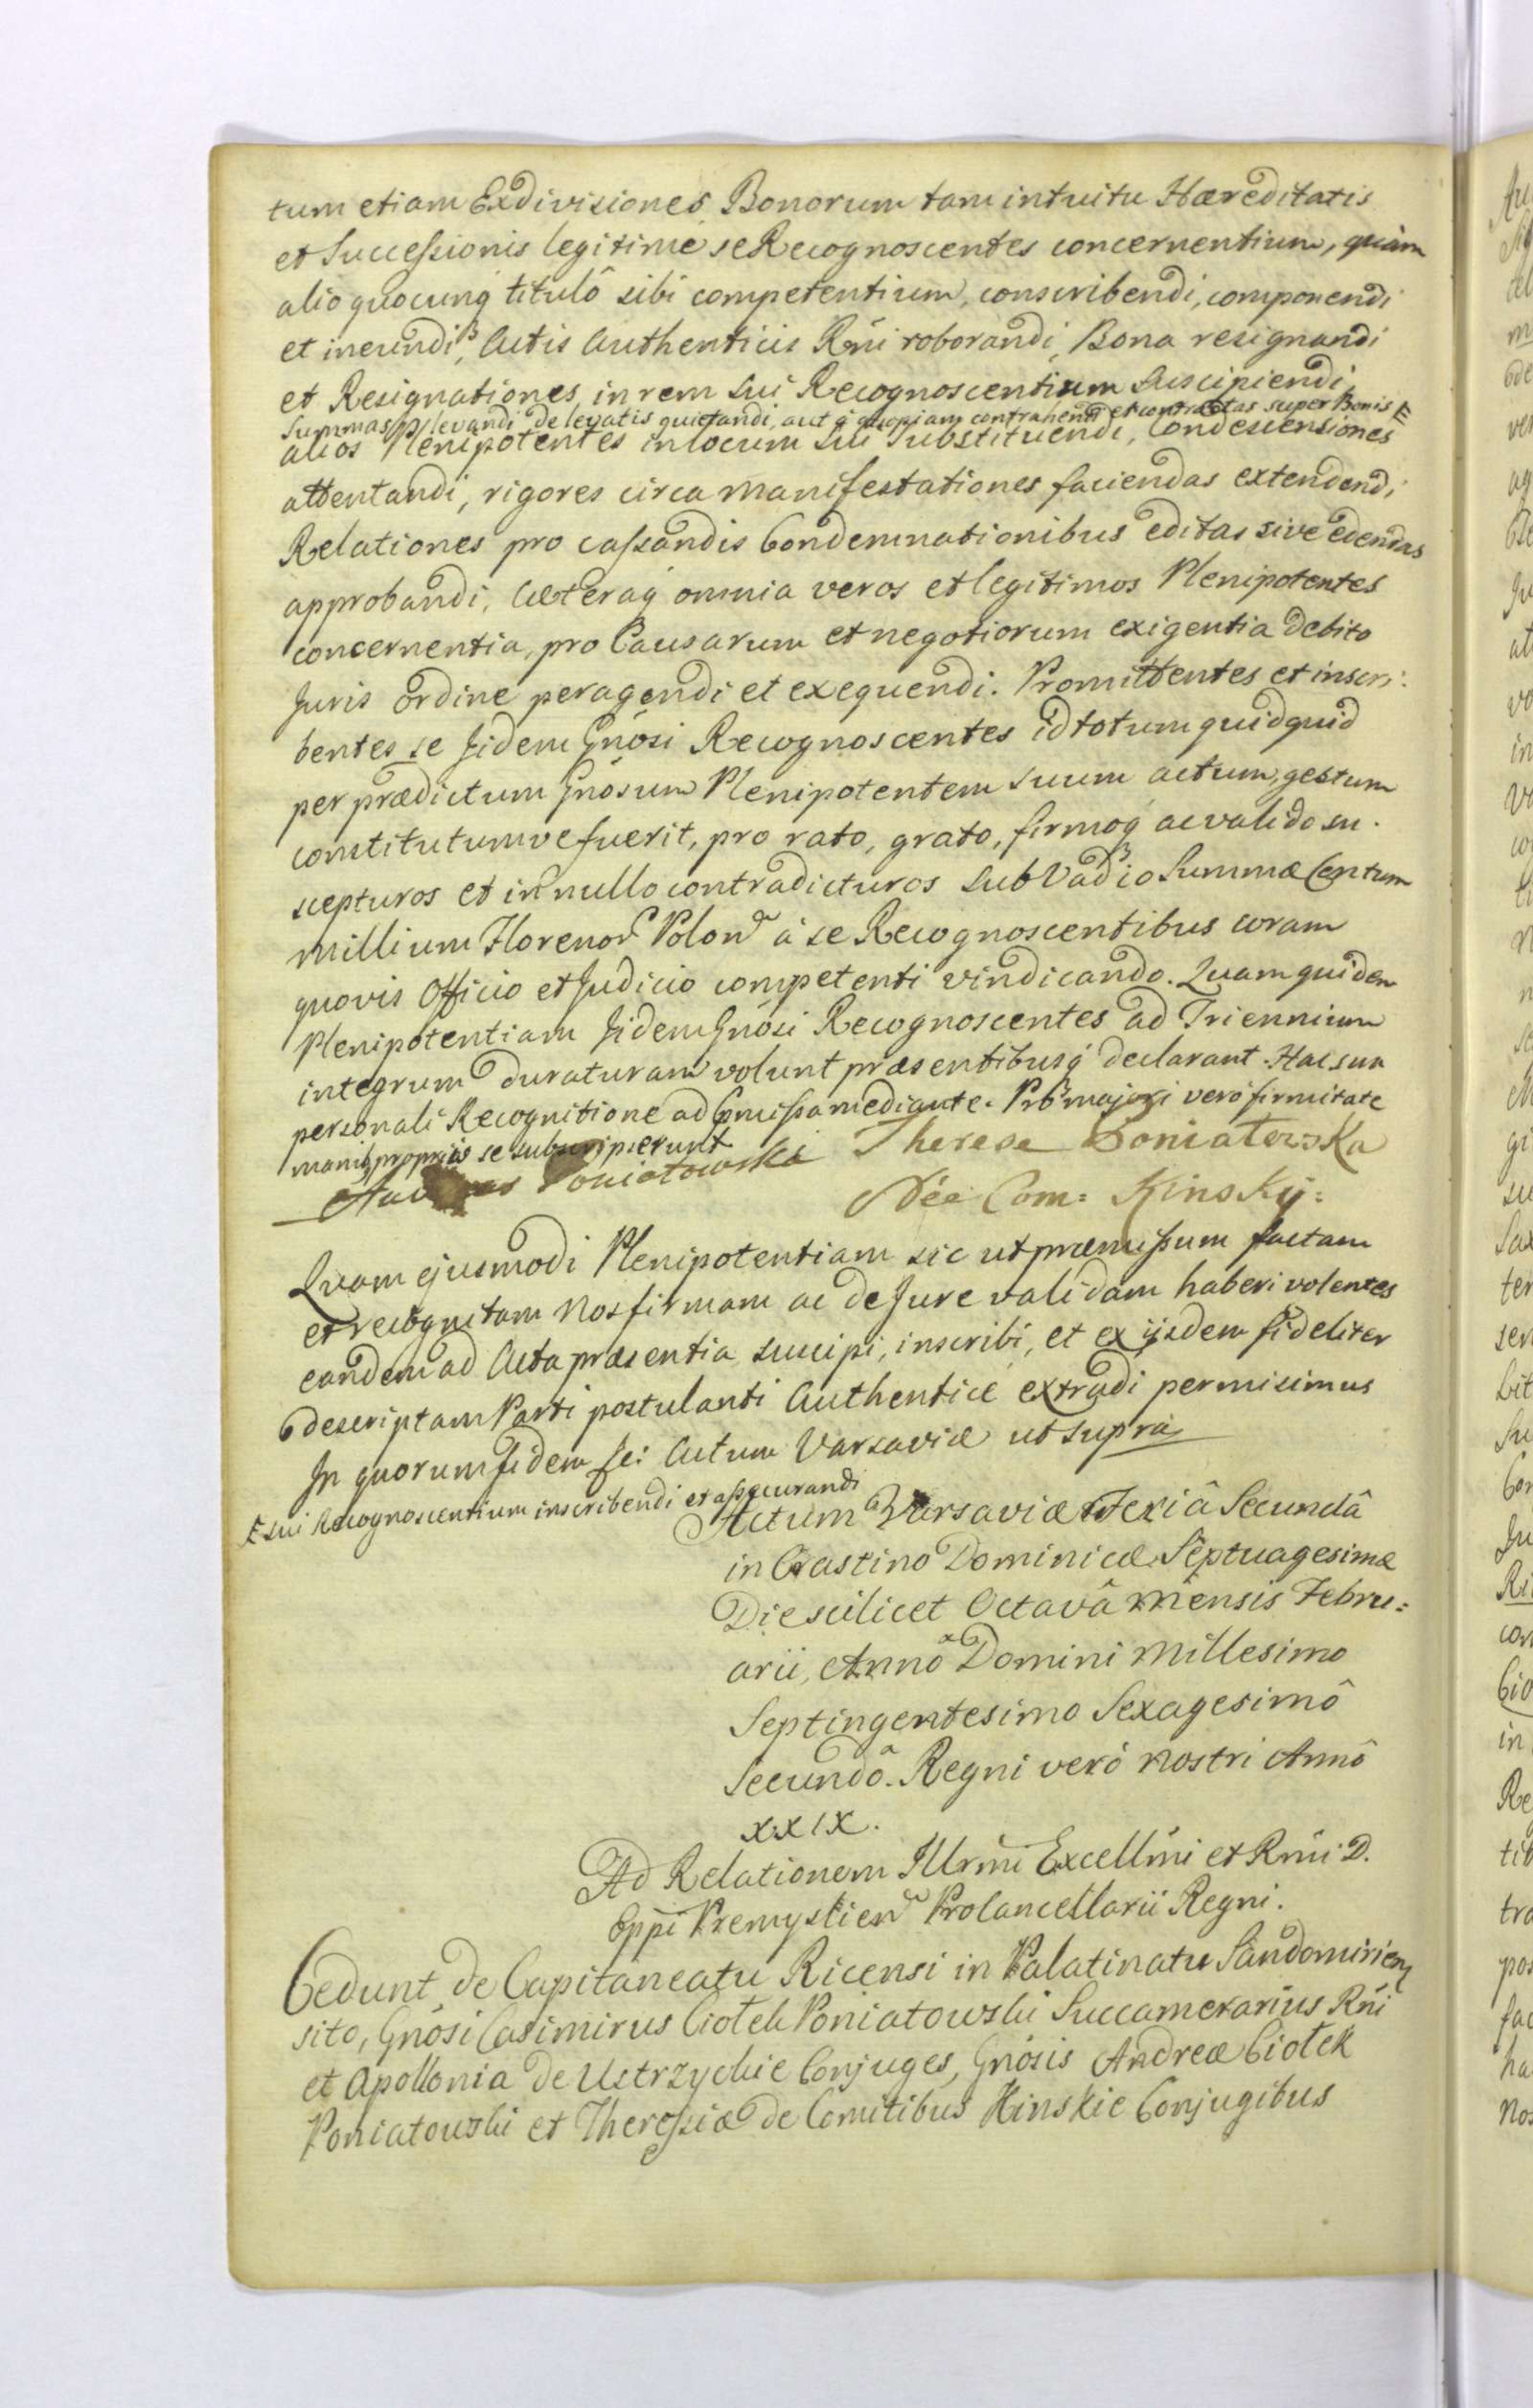 tum etiam Exdivisiones Bonorum tam intuitu Hæreditatis
et Successionis legitimè se Recognoscentes concernentium, quàm
alio quocunq titulô sibi competentium, conscribendi, componendi
et ineundi, Actis Authenticis Rñi roborandi, Bona resignandi
et Resignationes in rem sui Recognoscentium suscipiendi,
Summas levandi de levatis quietandi, aut à quopiam contrahendi et contractas super Bonis E
alios Plenipotentes in locum sui Substituendi, Condescensiones
attentandi, rigores circa manifestationes faciendas extendendi,
Relationes pro cassandis Condemnationibus editas sive edendas
approbandi, Cæteraq omnia veros et legitimos Plenipotentes
concernentia, pro Causarum et negotiorum exigentia debito
Juris ordine peragendi et exequendi. Promittentes et inscri:
bentes se Jidem Gnosi Recognoscentes id totum quidquid
per prædictum Gnosum Plenipotentem suum actum, gestum
constitutumve fuerit, pro rato, grato, firmoq ac valido su.
scepturos et in nullo contradicturos sub Vadio Summæ Centum
millium Florenor Polon à se Recognoscentibus coram
quovis Officio et Judicio competenti vindicando. Quam quidem
Plenipotentiam Jidem Gnosi Recognoscentes ad Triennium
integrum duraturam volunt præsentibusq declarant. Hac sua
personali Recognitione ad præmissa mediante. Pro majori verò firmitate
manib propriis se subscripserunt
Poniatowski Therese Poniatowska
Née Com: Kinsky:
Quam ejusmodi Plenipotentiam sic ut præmissum factam
et recognitam Nos firmam ac de Jure validam haberi volentes
eandem ad Acta præsentia suscipi, inscribi, et ex ijsdem fideliter
descriptam Parti postulanti Authenticè extradi permisimus
In quorum fidem etc: Actum Varsaviæ ut supra
E sui Recognoscentium inscribendi et assecurandi
Actum Varsaviæ Feriâ Secundâ
in Crastino Dominicæ Septuagesimæ
Die scilicet Octavâ Mensis Febru:
arii, Annô Domini Millesimo
Septingentesimo Sexagesimô
Secundô. Regni verò Nostri Annô
XXIX.
Ad Relationem Illrmi Excellmi et Rmi D.
Eppi Premyslien Procancellarii Regni.
Cedunt de Capitaneatu Ricensi in Palatinatu Sandomirien
sito, Gnosi Casimirus Ciołek Poniatowski Succamerarius Rñi
et Apollonia de Ustrzyckie Conjuges, Gnosis Andreæ Ciołek
Poniatowski et Theressiæ de Comitibus Kinskie Conjugibus